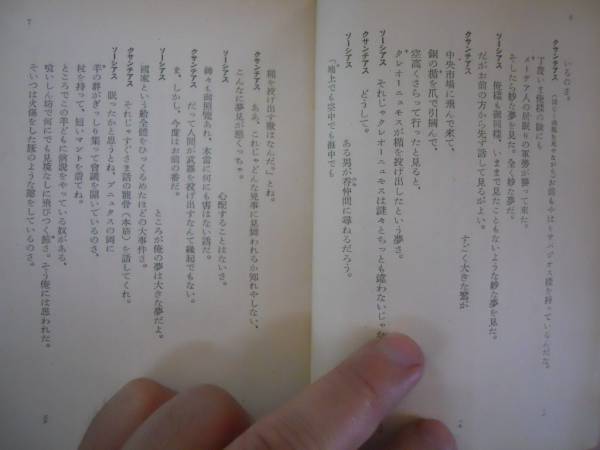 6
いるのさ。
クサンチアス
丁度いま俺様の瞼にも
メーヂア人の居眠りの軍勢が襲って来た。
そしたら妙な夢を見た。全く妙な夢だ。
ソーシアス 俺様も御同様、いままで見たこともないような妙な夢を見た。
だがお前の方から先ず話して見るがよい。
クサンチアス すごく大きな鷲が
中央市場に飛んで来て、
銅の楯を爪で引摑んで、
空高くさらって行ったと見ると、
クレオーニュモスが楯を投げ出したという夢さ。
ソーシアス それじゃクレオーニュモスは謎々とちっとも違わないじゃな
クサンチアス どうして。
ソーシアス ある男が呑仲間に尋ねるだろう。
「地上でも空中でも海中でも
7
楯を投げ出す獣はなんだ。」とね。
クサンチアス ああ、これじゃどんな兇事に見舞われるか知れやしない、
こんなに夢見が悪くっちゃ。
ソーシアス 心配することはないさ。
神々も御照覧あれ、本当に何にも害はない話だ。
クサンチアス だって人間が武器を投げ出すなんて縁起でもない。
ま、しかし、今度はお前の番だ。
ソーシアス ところが俺の夢は大きな夢だよ。
國家という船全体をひっくるめたほどの大事件さ。
クサンチアス それじゃすぐさま話の龍骨(本筋)を話してくれ。
ソーシアス 眠ったかと思うとね、プニュクスの岡に
羊の群がぎっしり集って會議を開いているのさ、
杖を持って、短いマントを着てね。
ところでこの羊どもに演説をやっている奴がある、
喰いしん坊で何にでも見境なしに飛びつく鯨さ。そう俺には思われた。
そいつは火傷をした豚のような聲をしているのさ。